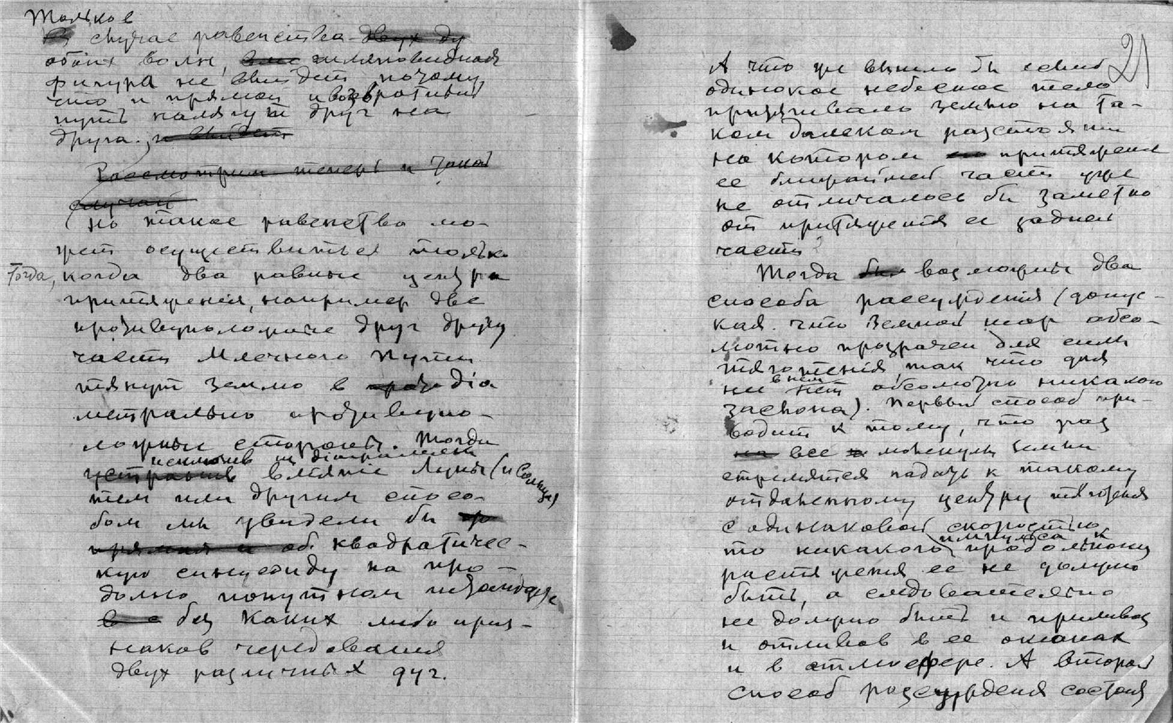 Только в
случае равенства
обоих волн, змеевидная
фигура не выйдет, потому
что и прямой и возвратный
путь налягут друг на
друга.
Рассмотрим теперь и такой
случай
Но такое равенство мо-
жет осуществиться только
Тогда, когда два равные центра
притяжения, например две
противуположные друг другу
части Млечного Пути
тянут Землю в діа
метрально противупо-
ложные стороны. Тогда
исключив из діаграммы
устранив вліяніе Луны (и Солнца)
тем или другим спосо-
бом мы увидели бы
квадратичес-
кую синусоиду на про-
дольно попутном
без каких либо приз-
наков чередования
двух различных дуг.
21
А что же вышло бы если
одинокое небесное тело
притягивало Землю на та-
ком далеком разстоянии
на котором притяжение
ее ближайшей части уже
не отличалось бы заметно
от притяжения ее задней
части?
Тогда возможны два
способа рассуждения (допус-
кая что Земной шар абсо-
лютно прозрачен для силы
тяготения так что для
нее в нем нет абсолютно никакого
заслона). Первый способ при-
водит к тому, что раз
все молекулы Земли
стремятся падать к такому
отдаленному центру тяготения
с одинаковой скоростью
то никакого импульса к продольному
растяжения ее не должно
быть, а следовательно
не должно быть и приливов
и отливов в ее океанах
и в атмосфере. А второй
способ рассуждения состоит